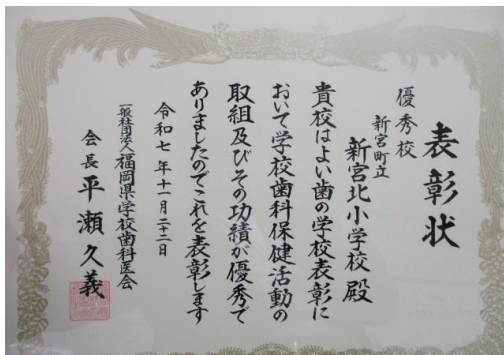 表彰状
優秀校
新宮町立
新宮北小学校 殿
貴校はよい歯の学校表彰に
おいて学校歯科保健活動の
取組及びその功績が優秀で
ありましたのでこれを表彰します
令和七年十一月二十二日
一般社団法人福岡県学校歯科医会
会長 平瀬久義